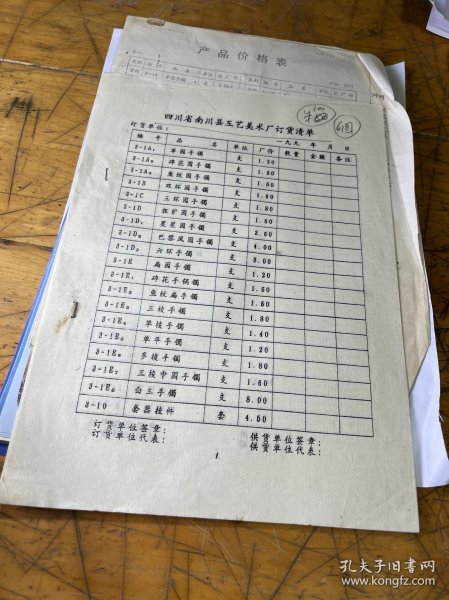 产品价格表
四川省南川县工艺美术厂订货清单
订货单位： 一九九 年 月 日
编号 品名 单位 厂价 数量 金额 备注
3-1A₁ 单园手镯 支 1.20
3-1A₂ 碎花园手镯 支 1.50
3-1A₃ 鱼纹园手镯 支 1.50
3-1B 双环园手镯 支 1.60
3-1C 三环园手镯 支 1.80
3-1D 挺圹园手镯 支 1.80
3-1D₁ 星星园手镯 支 3.60
3-1D₂ 巴黎风园手镯 支 4.00
3-1D₃ 六环手镯 支 3.00
3-1E 扁园手镯 支 1.20
3-1E₁ 碎花手镯 支 1.50
3-1E₂ 鱼纹扁手镯 支 1.50
3-1E₃ 三棱手镯 支 1.80
3-1E₄ 单棱手镯 支 1.40
3-1E₅ 单平手镯 支 1.20
3-1E₆ 多棱手镯 支 1.80
3-1E₇ 三棱中园手镯 支 1.60
白玉手镯 支 8.00
3-10 套器挂件 套 4.50
订货单位签章： 供货单位签章：
订货单位代表： 供货单位代表：
1
孔夫子旧书网
www.kongfz.com